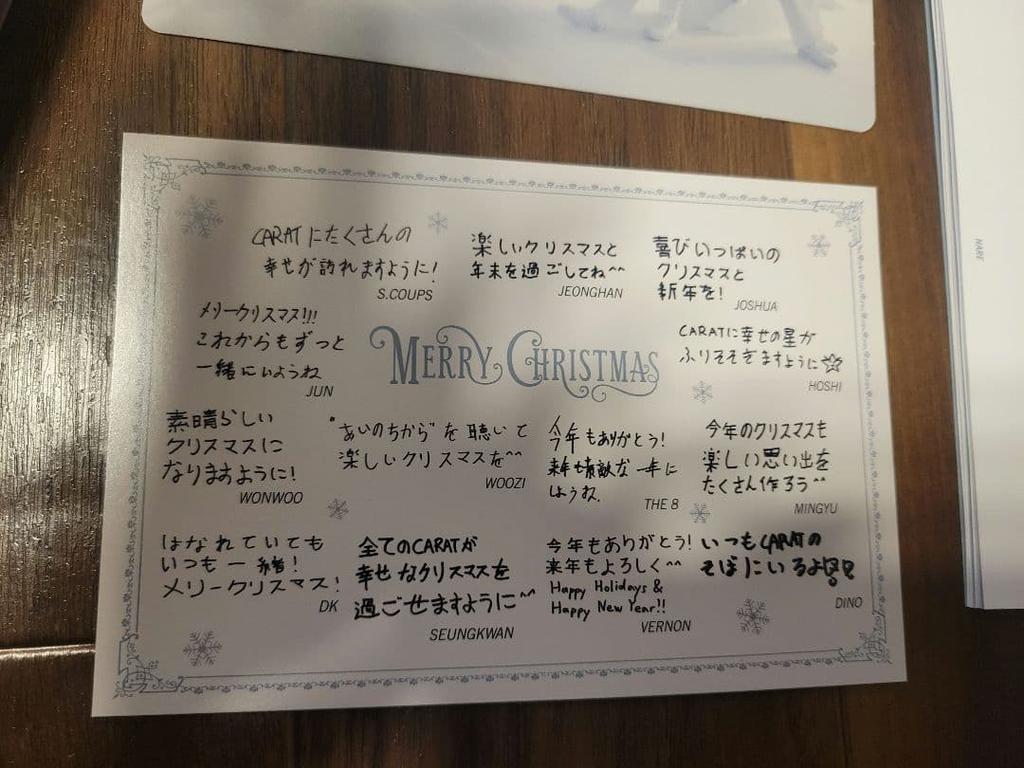 CARATにたくさんの
幸せが訪れますように!
S.COUPS
楽しいクリスマスと
年末を過ごしてね^^
JEONGHAN
喜びいっぱいの
クリスマスと
新年を!
JOSHUA
メリークリスマス!!!
これからもずっと
一緒にいようね
JUN
MERRY CHRISTMAS
CARATに幸せの星が
ふりそそぎますように☆
HOSHI
素晴らしい
クリスマスに
なりますように!
WONWOO
"あいのちから"を聴いて
楽しいクリスマスを^^
WOOZI
今年もありがとう!
来年も素敵な一年に
しようね
THE 8
今年のクリスマスも
楽しい思い出を
たくさん作ろう^^
MINGYU
はなれていても
いつも一緒!
メリークリスマス!
DK
全てのCARATが
幸せなクリスマスを
過ごせますように^^
SEUNGKWAN
今年もありがとう!
来年もよろしく^^
Happy Holidays &
Happy New Year!!
VERNON
いつもCARATの
そばにいるよ
DINO